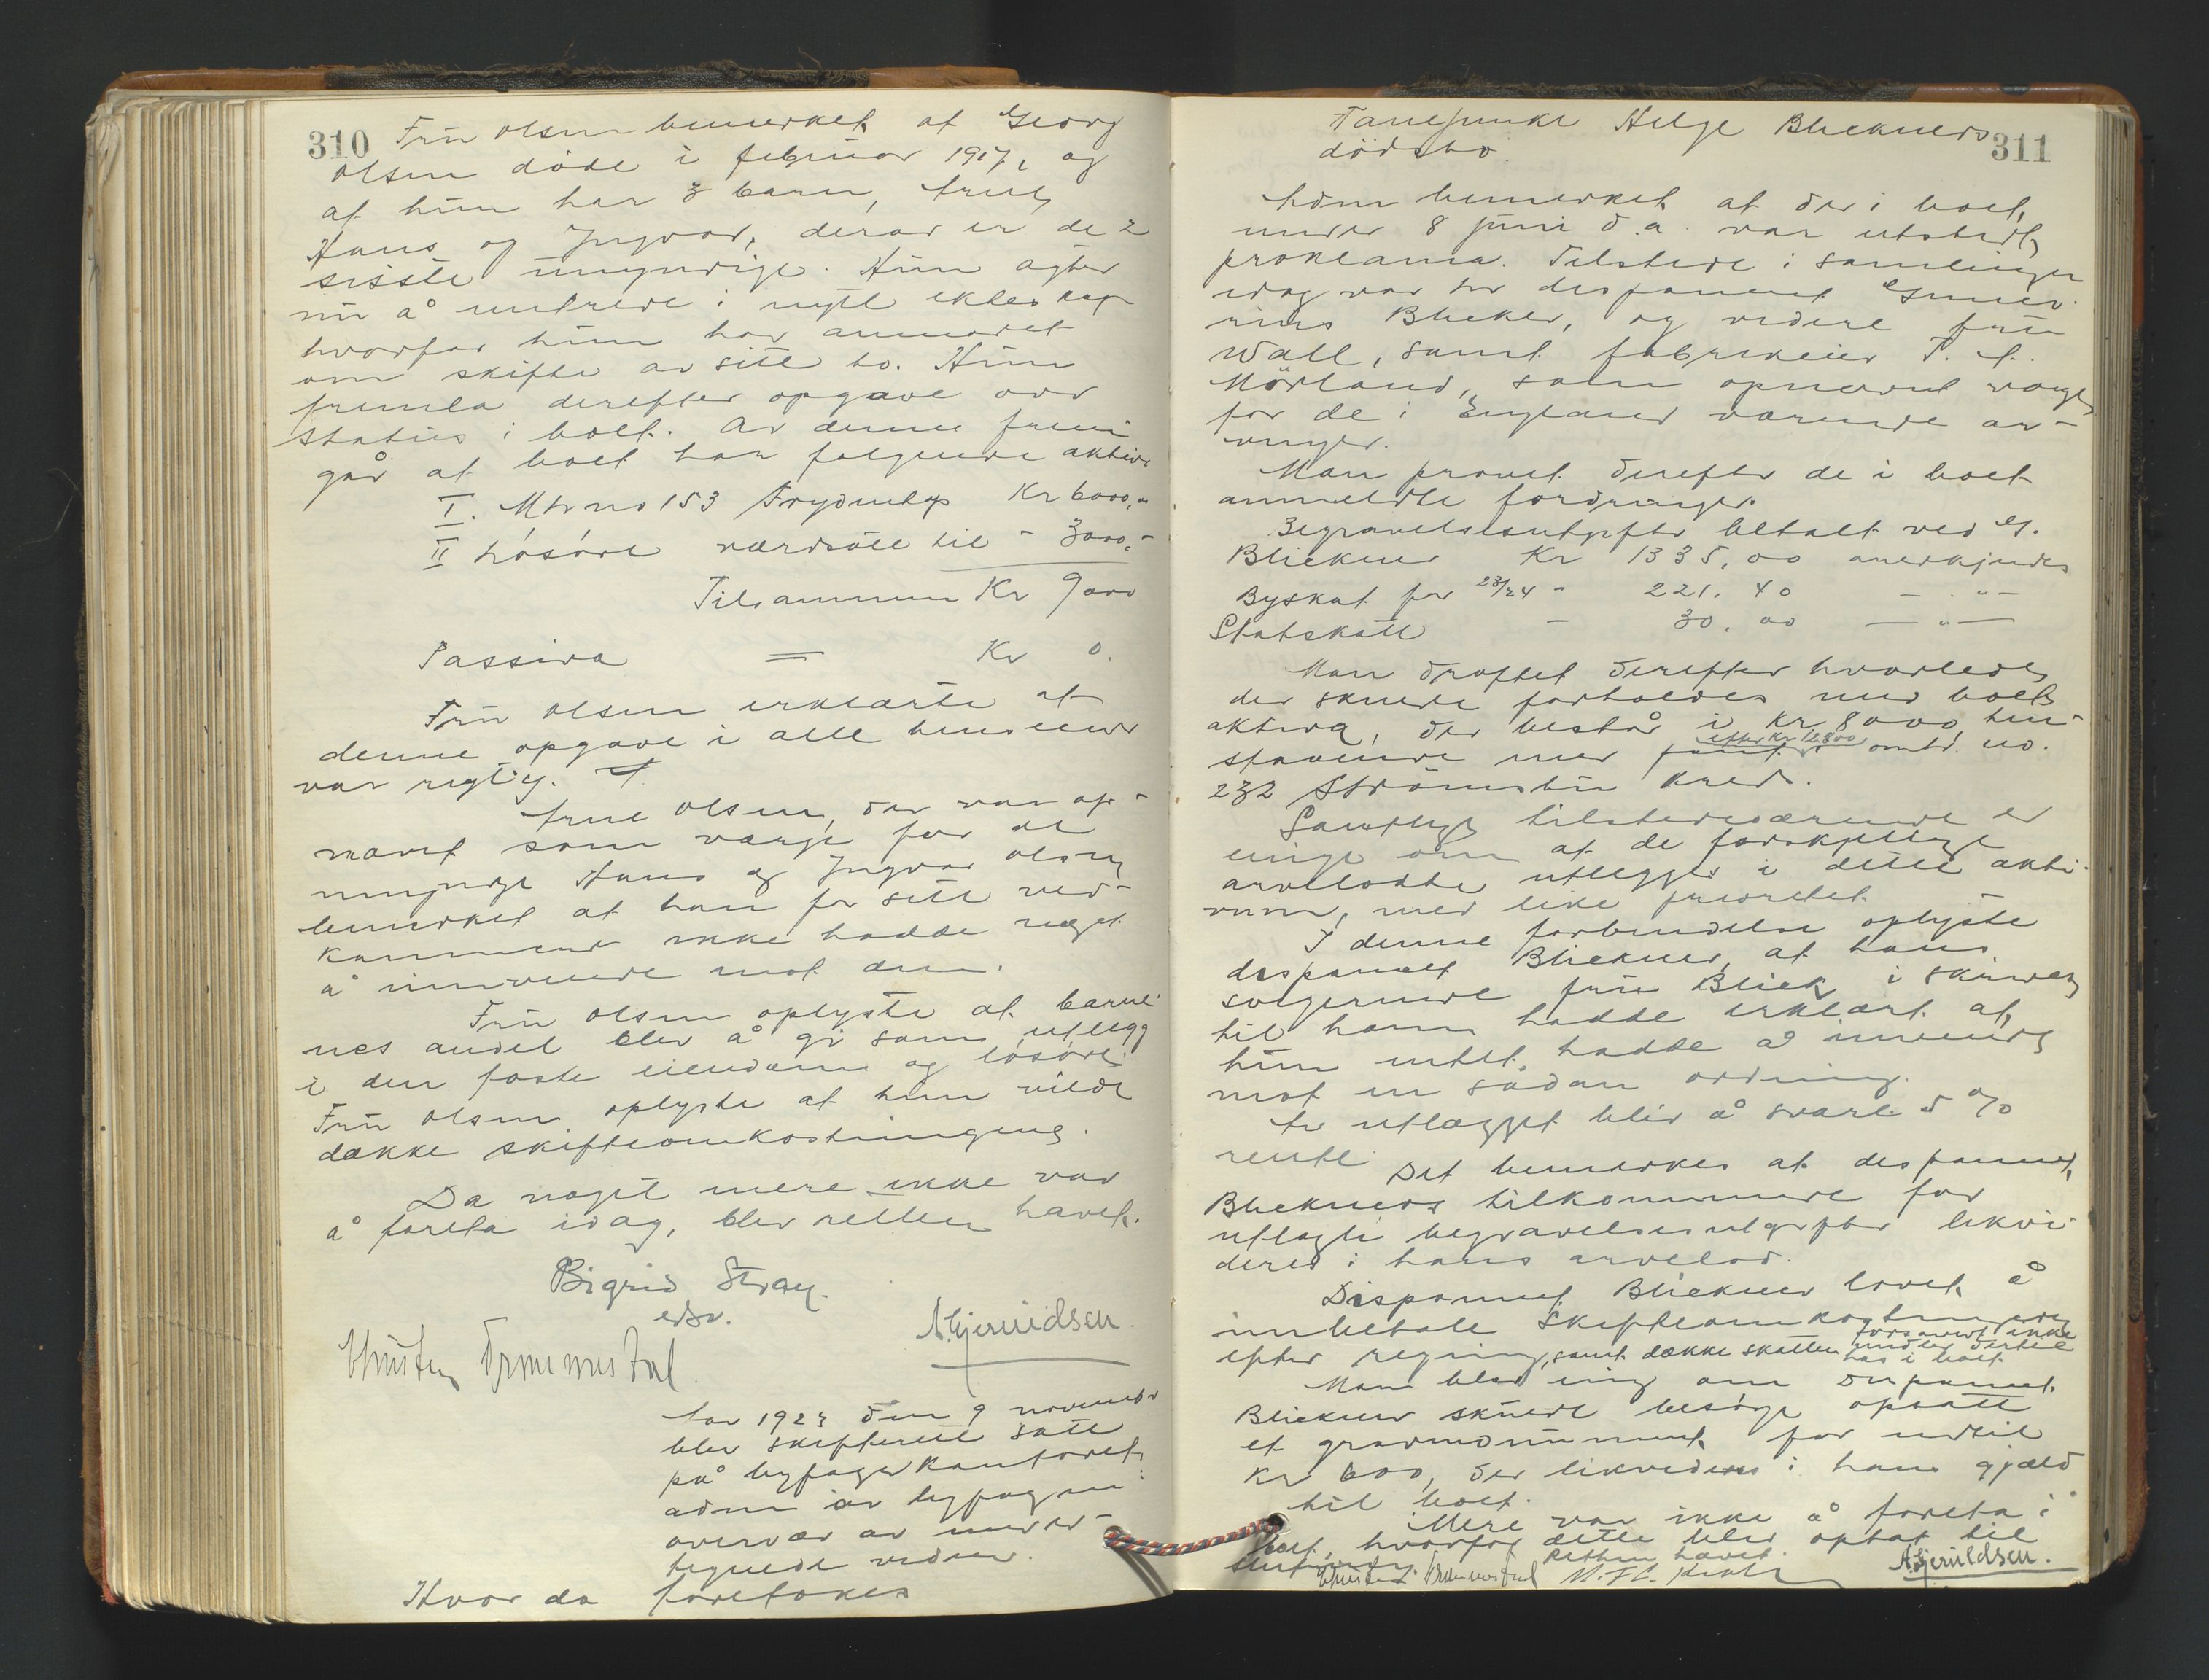 310
Frú Olsen bemerket at Georg
Olsen døde i februar 1917, og
at hun har 3 barn,
Hans og Yngvar, derav er de 2
sisste umyndige. Hun agter
nu å inntrede i nytt ekteskap
hvorfor hun har anmodet
om skifte av sitt bo. Hun
fremla derefter opgave over
status i boet. Av denne frem
går at boet har følgende aktiva
I. Mtr no 153 Kr 6000,-
II løsøre værdsatt til - 3000,-
Tilsammen Kr 9000
Passiva = Kr 0.
Frú Olsen erklærte at
denne opgave i alle henseender
var rigtig.
Olsen, der var op-
nævnt som værge for de
umyndige Hans og Yngvar Olsen
bemerket at han for sitt ved-
kommende ikke hadde noget
å innvende mot den.
Frú Olsen oplyste at barne-
nes andel blev å gi som utlegg
i den faste eiendom og løsøre.
Frú Olsen oplyste at hun vilde
dække skifteomkostningene.
Da noget mere ikke var
å foreta idag, blev retten hævet.
Sigrid Stray.
edsv.
A. Gjeruldsen.
År 1923 den 9 november
blev skifterett satt
på byfogedkontoret
adm av byfogden i
overvær av under-
tegnede vidner.
Hvor da foretokes
311
Helge Bliekners
dødsbo.
bemerket at der i boet
under 8 juni d.a. var utstedt
proklama. Tilstede i samlingen
idag var hr disponent
Bliekner, og videre frú
Wall, samt fabrikeier T. A.
Mørland, som opnevnt værge
for de i England værende ar-
vinger.
Man prøvet derefter de i boet
anmeldte fordringer.
Begravelsesutgifter betalt ved G.
Bliekner Kr 1335,00 anerkjendes
Byskat for 23/24 - 221.40 - " -
Statskatt - 30.00 - " -
Man drøftet derefter hvorledes
der skulde forholdes med boets
aktiva, der består i Kr 8000, inne-
stående med efter Kr omtr. no.
232 Strømsbu Kred.
Samtlige tilstedeværende er
enige om at de forskjellige
arvelodder utlegges i dette akti-
vum, med like prioritet.
I denne forbindelse oplyste
disponent Bliekner, at hans
svigerinne frú Bliekner i skrivelse
til ham hadde erklært at
hun intet hadde å innvende
mot en sådan ordning.
Av utlægget blir å svare 5 %
rente.
Det bemerkes at disponent
Bliekners tilkommende for
utlagte begravelsesutgifter likvi-
deres i hans arvelod.
Disponent Bliekner lovet å
innbetale skifteomkostningene
efter regning, samt dække skatten forsåvidt ikke
midler dertil
has i boet
Man blev enig om disponent
Bliekner skulde besørge opsatt
et gravmonument for inntil
Kr 600, der likvideres i hans gjæld
til boet.
Mere var ikke å foreta i
boet, hvorfor dette blev optat til
slutning. Retten hævet.
A. Gjeruldsen.